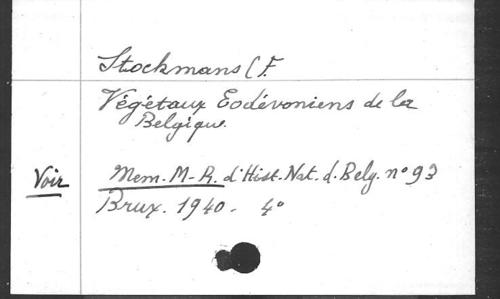 Stockmans (F.
Végétaux Eodévoniens de la
Belgique.
Voir Mem. M-R. d'Hist. Nat. d. Belg. n° 93
Brux. 1940. 4°